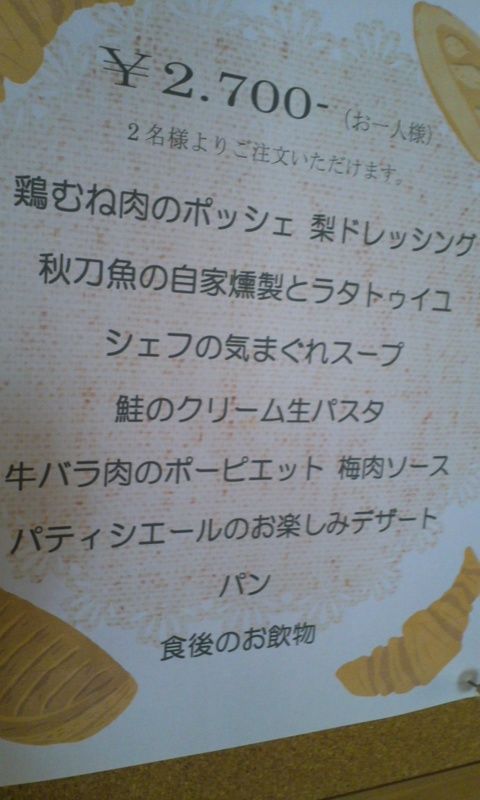 ￥2.700-（お一人様）
2名様よりご注文いただけます。
鶏むね肉のポッシェ 梨ドレッシング
秋刀魚の自家燻製とラタトゥイユ
シェフの気まぐれスープ
鮭のクリーム生パスタ
牛バラ肉のポーピエット 梅肉ソース
パティシエールのお楽しみデザート
パン
食後のお飲物